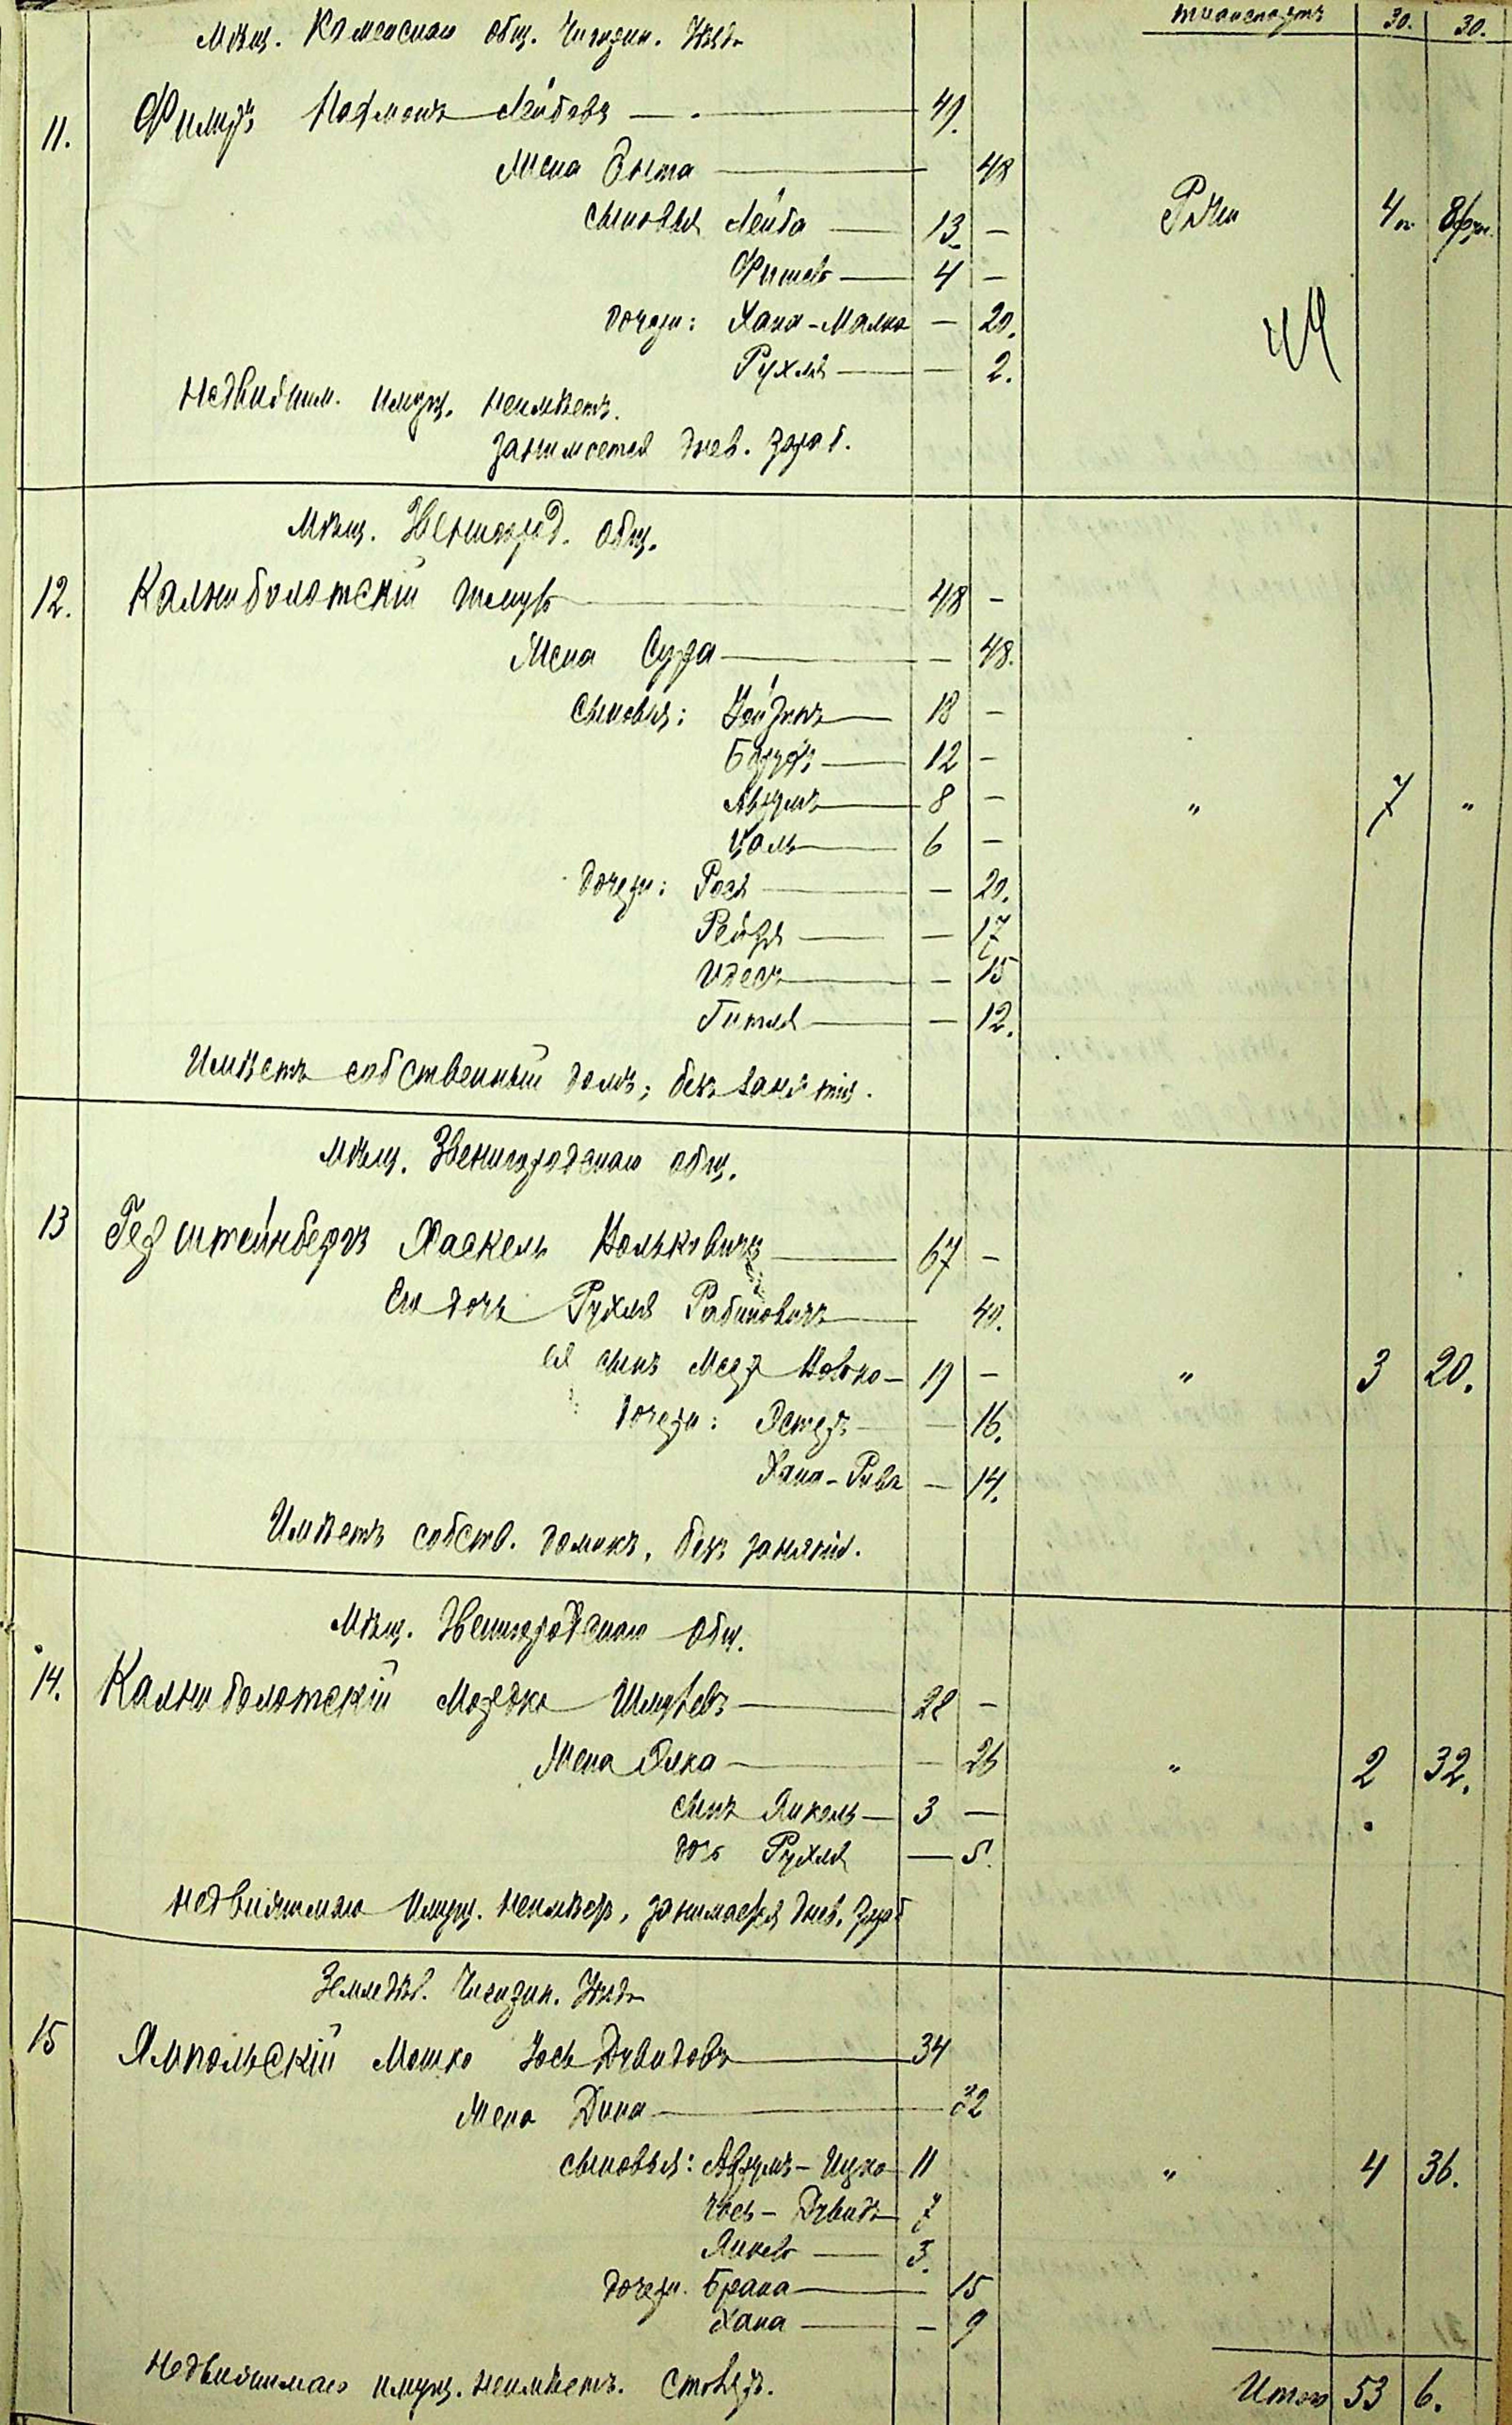 транспортъ 30. 30.
Мѣщ. Каменскаго общ. Чигирин. Уѣзда
11. Лейбовъ — 49.
Жена — 48
сыновья Лейба — 13 —
Фишель — 4 —
дочери: Хана-Малка — 20.
Рухля — 2.
Ржи 4 п. 8 фун.
Недвижим. имущ. неимѣетъ.
занимается днев. зараб.
Мѣщ. Звенигород. общ.
12. Калниболотскій Шмуль — 48 —
Жена Сура — 48.
сыновья: — 18 —
Борухъ — 12 —
Аврумъ — 8 —
" 7 "
— 6 —
дочери: Рося — 20.
Рейзя — 17
Идесъ — 15
Гитля — 12.
Имѣетъ собственный домъ; безъ занятія.
Мѣщ. Звенигородскаго общ.
13 Герштейнбергъ Хаскель Вольковичъ — 67 —
Его дочь Рухля Рабиновичъ — 40.
ея сынъ Меер Волько — 19 —
" 3 20.
дочери: Эстеръ — 16.
Хана-Рива — 14.
Имѣетъ собств. домикъ, безъ занятія.
Мѣщ. Звенигородскаго общ.
14. Калниболотскій Мордко Шмулевъ — 28 —
Жена Элка — 26
" 2 32.
сынъ Янкель — 3 —
дочь Рухля — 5.
недвижимаго имущ. неимѣетъ, занимается днев. зараб
Земледѣл. Чигирин. Уѣзда
15 Ямпольскій Мошко Іось Дувидовъ — 34
Жена Дина — 32
сыновья: Аврумъ-Ицко 11
" 4 36.
Іось-Дувидъ 7
Янкель — 3.
дочери. Брана — 15
Хана — 9
Недвижимаго имущ. неимѣетъ. Столяръ.
Итого 53 6.